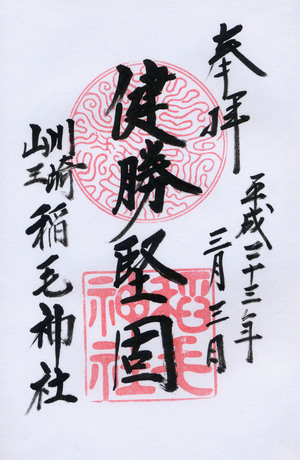 奉拝
平成二十三年
三月三日
健勝堅固
川崎
山王
稲毛神社
稲毛
神社